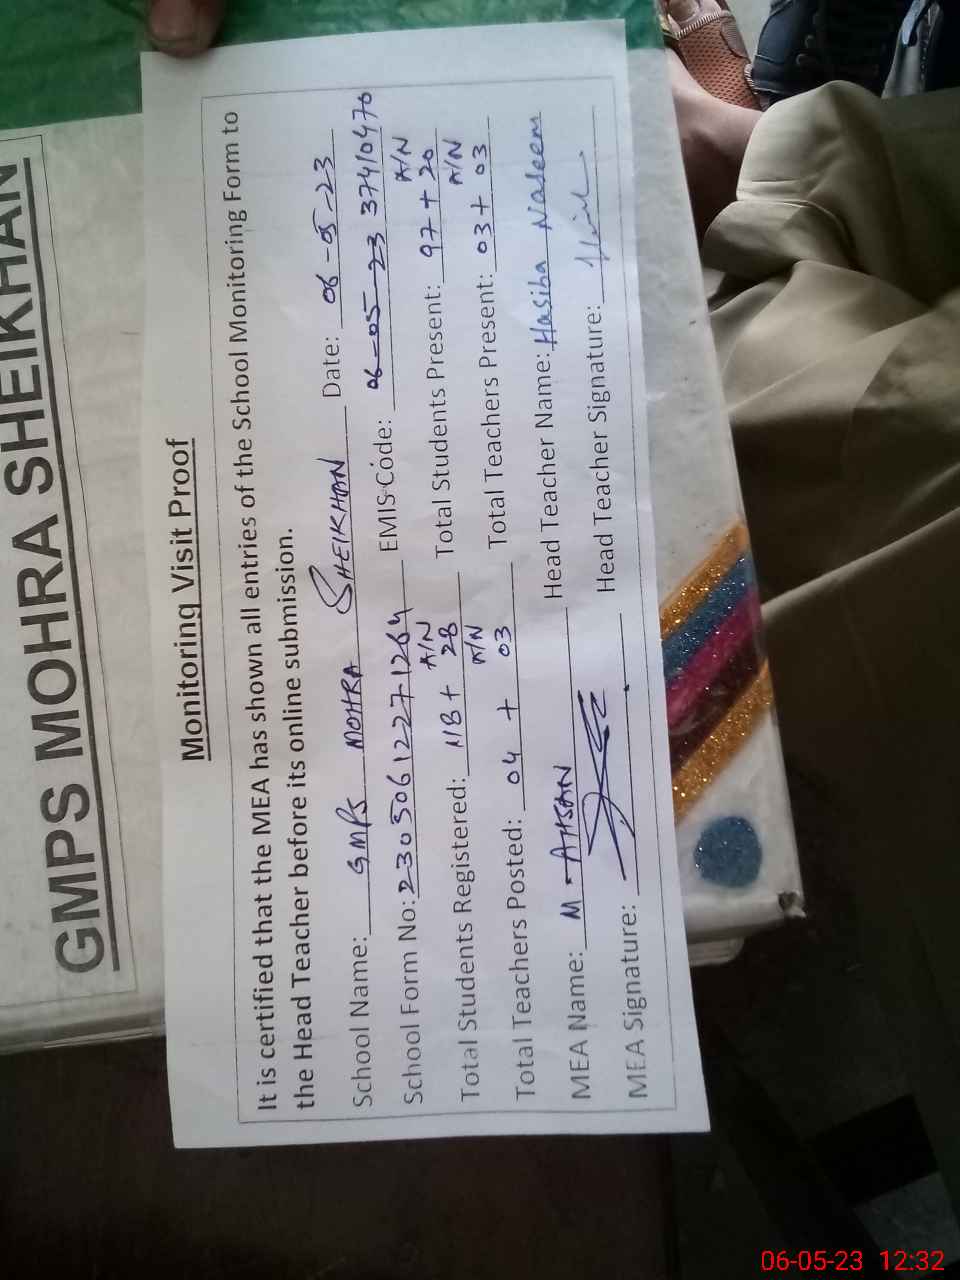 GMPS MOHRA SHEIKHAN
Monitoring Visit Proof
It is certified that the MEA has shown all entries of the School Monitoring Form to
the Head Teacher before its online submission.
School Name: GMPS MOHRA SHEIKHAN Date: 06-05-23
School Form No: 23050612271264 EMIS Code: 06-05-23 37410470
Total Students Registered: 118 + 28 A/N Total Students Present: 97 + 20 A/N
Total Teachers Posted: 04 + 03 A/N Total Teachers Present: 03 + 03 A/N
MEA Name: M-AHSAN Head Teacher Name: Hasiba Naseem
MEA Signature: Head Teacher Signature:
06-05-23 12:32